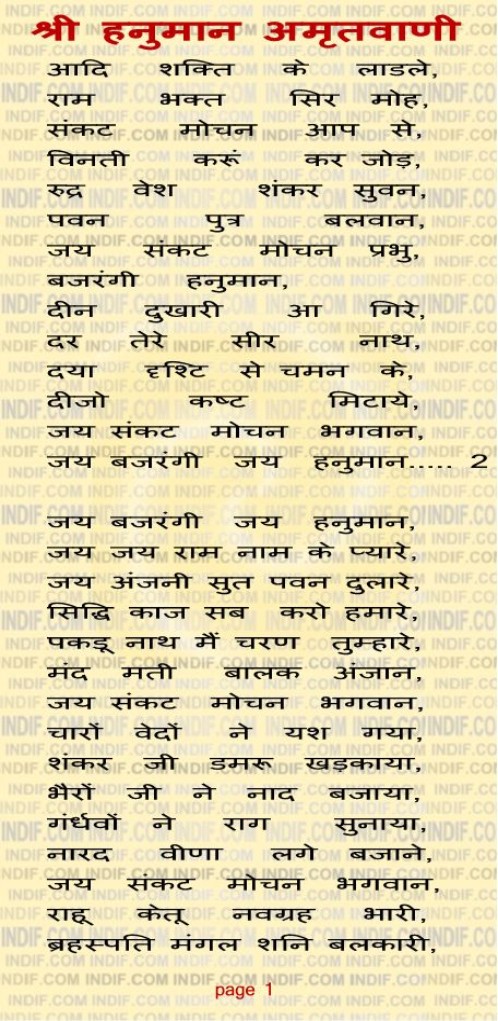 श्री हनुमान अमृतवाणी
आदि शक्ति के लाडले,
राम भक्त सिर मोह,
संकट मोचन आप से,
विनती करूं कर जोड़,
रुद्र वेश शंकर सुवन,
पवन पुत्र बलवान,
जय संकट मोचन प्रभु,
बजरंगी हनुमान,
दीन दुखारी आ गिरे,
दर तेरे सीर नाथ,
दया दृश्टि से चमन के,
दीजो कष्ट मिटाये,
जय संकट मोचन भगवान,
जय बजरंगी जय हनुमान..... 2
जय बजरंगी जय हनुमान,
जय जय राम नाम के प्यारे,
जय अंजनी सुत पवन दुलारे,
सिद्धि काज सब करो हमारे,
पकडू नाथ मैं चरण तुम्हारे,
मंद मती बालक अंजान,
जय संकट मोचन भगवान,
चारों वेदों ने यश गया,
शंकर जी डमरू खड़काया,
भैरों जी ने नाद बजाया,
गंर्धवों ने राग सुनाया,
नारद वीणा लगे बजाने,
जय संकट मोचन भगवान,
राहू केतू नवग्रह भारी,
ब्रहस्पति मंगल शनि बलकारी,
page 1